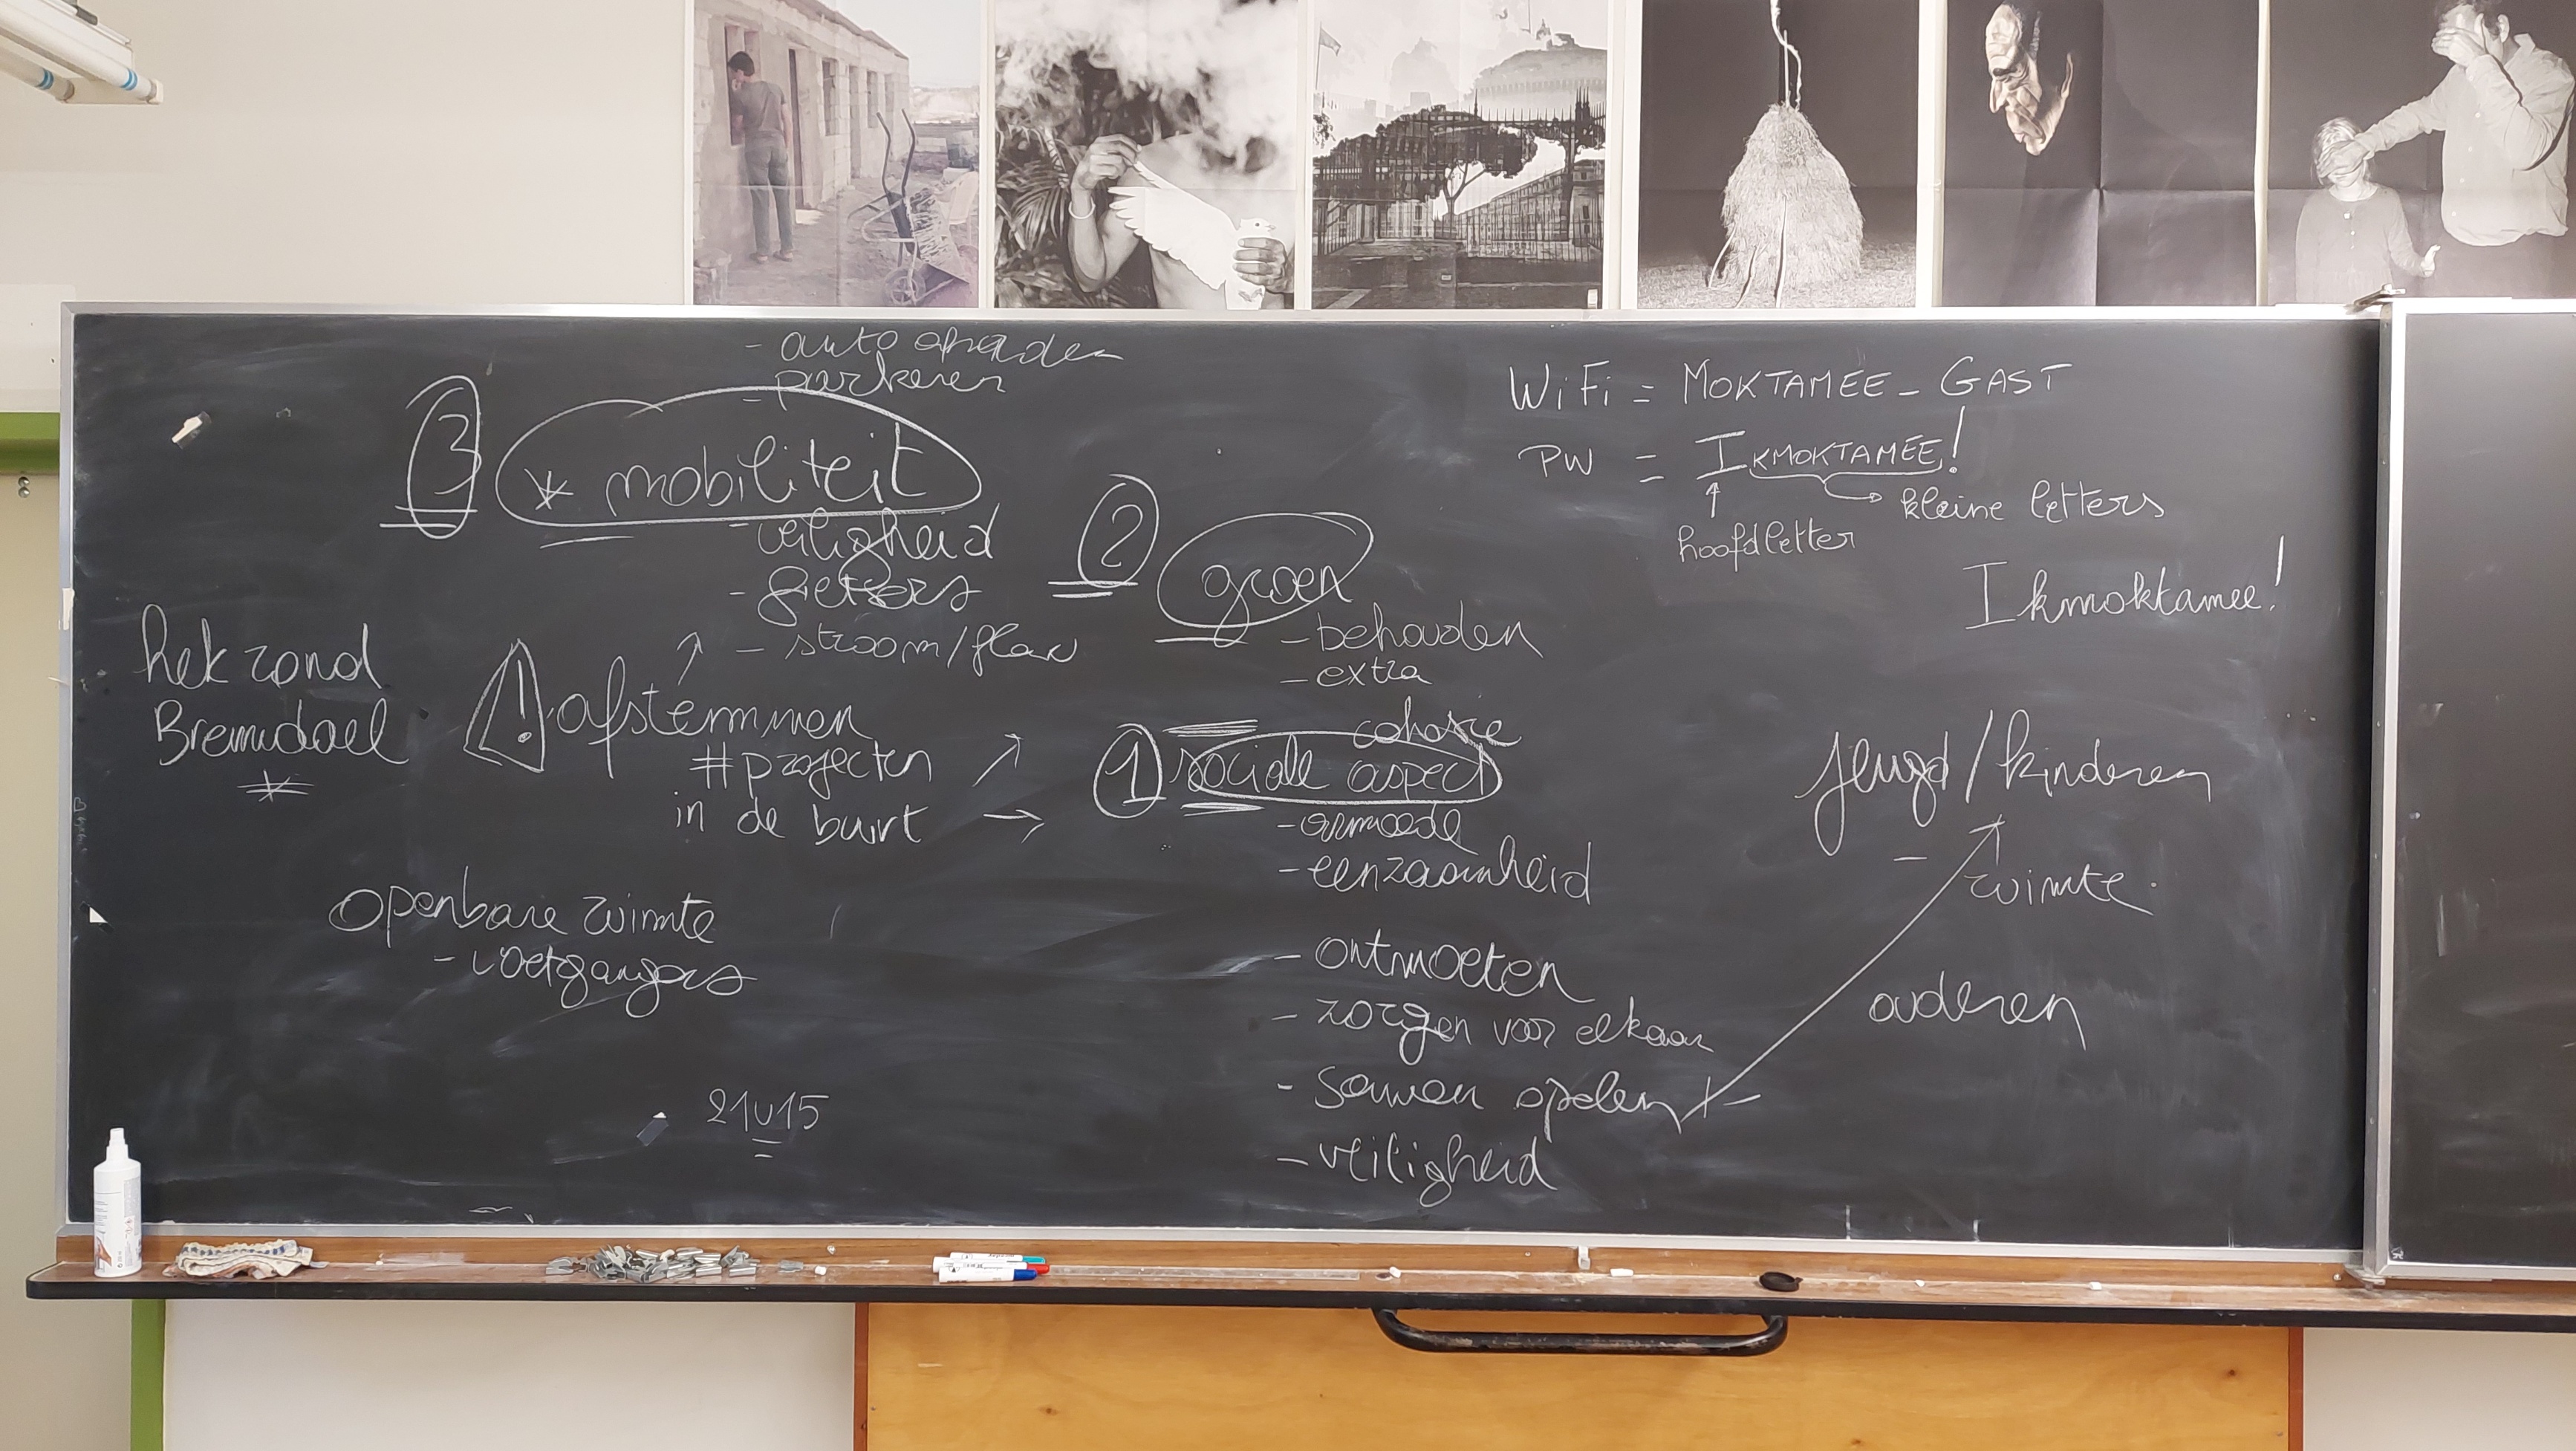 - auto opladen
- parkeren
3 * mobiliteit
- veiligheid
- fietsers
- stroom/flow
2 groen
- behouden
- extra
WiFi = MOKTAMEE_GAST
PW = IKMOKTAMEE!
hoofdletter
kleine letters
Ikmoktamee!
hek rond
Bremdael
*
! afstemmen
# projecten
in de buurt
cohesie
1 sociale aspect
- armoede
- eenzaamheid
- ontmoeten
- zorgen voor elkaar
- samen spelen
- veiligheid
jeugd/kinderen
- ruimte
ouderen
Openbare ruimte
- voetgangers
21u15